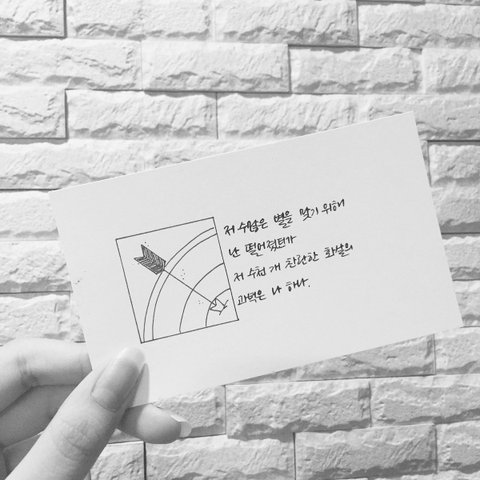 저 수많은 별을 맞기 위해
난 떨어졌던가
저 수천 개 찬란한 화살의
과녁은 나 하나.